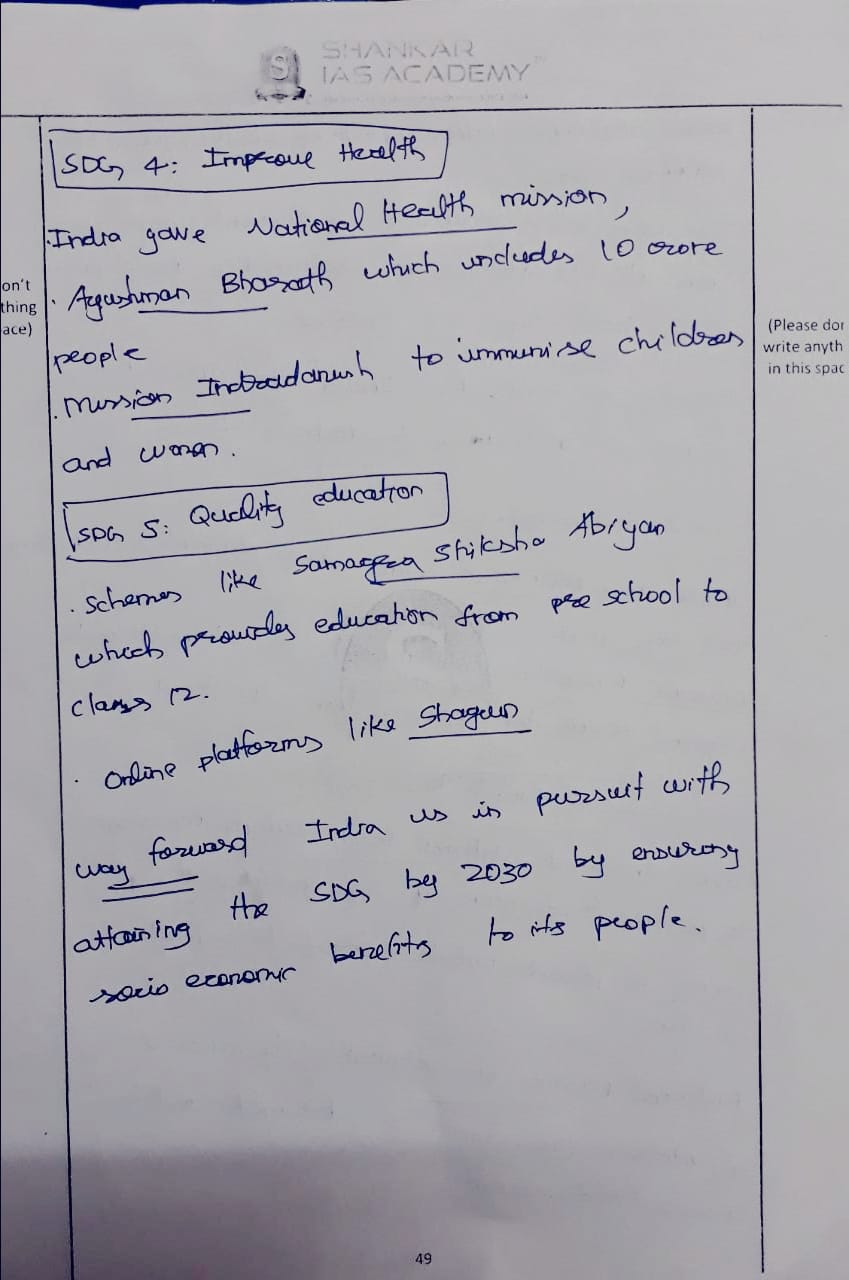 SHANKAR
IAS ACADEMY
SDG 4: Improve Health
. India gave National Health mission,
. Ayushman Bharath which includes 10 crore
people
. Mission Indradanush to immunise children
and women.
SDG 5: Quality education
. Schemes like Samagra Shiksha Abiyan
which provides education from pre school to
class 12.
. Online platforms like Shagun
way forward India is in pursuit with
attaining the SDG by 2030 by ensuring
socio economic benefits to its people.
on't
thing
ace)
(Please don
write anyth
in this spac
49